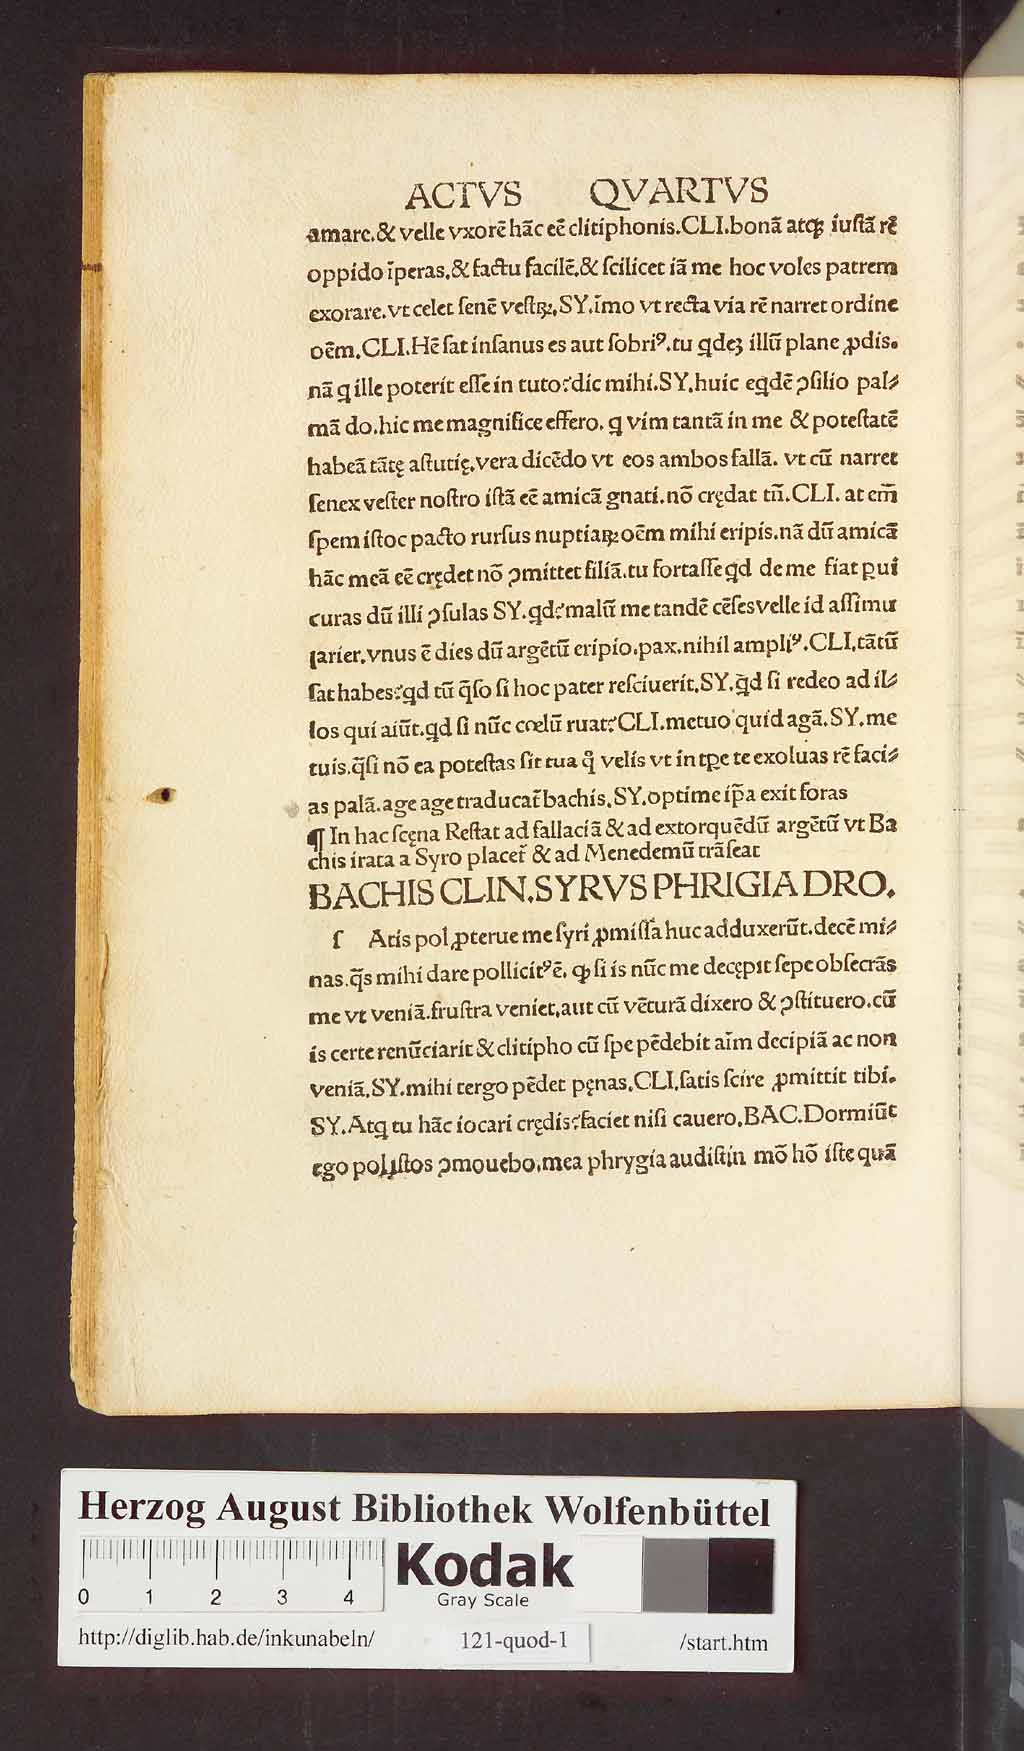 ACTVS QVARTVS
amare.& velle vxorē hāc eē clitiphonis.CLI.bonā atqꝫ iustā rē
oppido īperas.& factu facilē.& scilicet iā me hoc voles patrem
exorare.vt celet senē vestꝝ.SY.īmo vt recta via rē narret ordine
oēm.CLI.Hē sat insanus es aut sobriꝰ.tu qdeꝫ illū plane ꝓdis.
nā q ille poterit esse in tuto?dic mihi.SY.huic eqdē ꝯsilio pal⸗
mā do.hic me magnifice effero. q vim tantā in me & potestatē
habeā tātę astutię.vera dicēdo vt eos ambos fallā. vt cū narret
senex vester nostro istā eē amicā gnati.nō crędat tn̄.CLI. at em̄
spem istoc pacto rursus nuptiaꝝ oēm mihi eripis.nā dū amicā
hāc meā eē crędet nō ꝯmittet filiā.tu fortasse qd de me fiat ꝑui
curas dū illi ꝯsulas SY.qd?malū me tandē cēses velle id assimu
larier.vnus ē dies dū argētū eripio.pax.nihil ampliꝰ.CLI.tātū
sat habes?qd tū q̄so si hoc pater resciuerit.SY.q̄d si redeo ad il⸗
los qui aiūt.qd si nūc cœlū ruat?CLI.metuo quid agā.SY.me
tuis.q̄si nō ea potestas sit tua q̊ velis vt in tꝑe te exoluas rē faci⸗
as palā.age age traducat̄ bachis.SY.optime ip̄a exit foras
¶ In hac scęna Restat ad fallaciā & ad extorquēdū argētū vt Ba
chis irata a Syro placet̄ & ad Menedemū trāseat
BACHIS CLIN.SYRVS PHRIGIA DRO.
ſ Atis pol ꝓterue me syri ꝓmissa huc adduxerūt.decē mi⸗
nas.q̄s mihi dare pollicitꝰē. ꝙ si is nūc me decępit sepe obsecrās
me vt veniā.frustra veniet.aut cū vēturā dixero & ꝯstituero.cū
is certe renūciarit & clitipho cū spe pēdebit aīm decipiā ac non
veniā.SY.mihi tergo pēdet pęnas.CLI.satis scite ꝓmittit tibi.
SY.Atq tu hāc iocari crędis?faciet nisi cauero.BAC.Dormiūt
ego pol istos ꝯmouebo.mea phrygia audistin mō hō iste quā
Herzog August Bibliothek Wolfenbüttel
0 1 2 3 4
Kodak
Gray Scale
http://diglib.hab.de/inkunabeln/ 121-quod-1 /start.htm